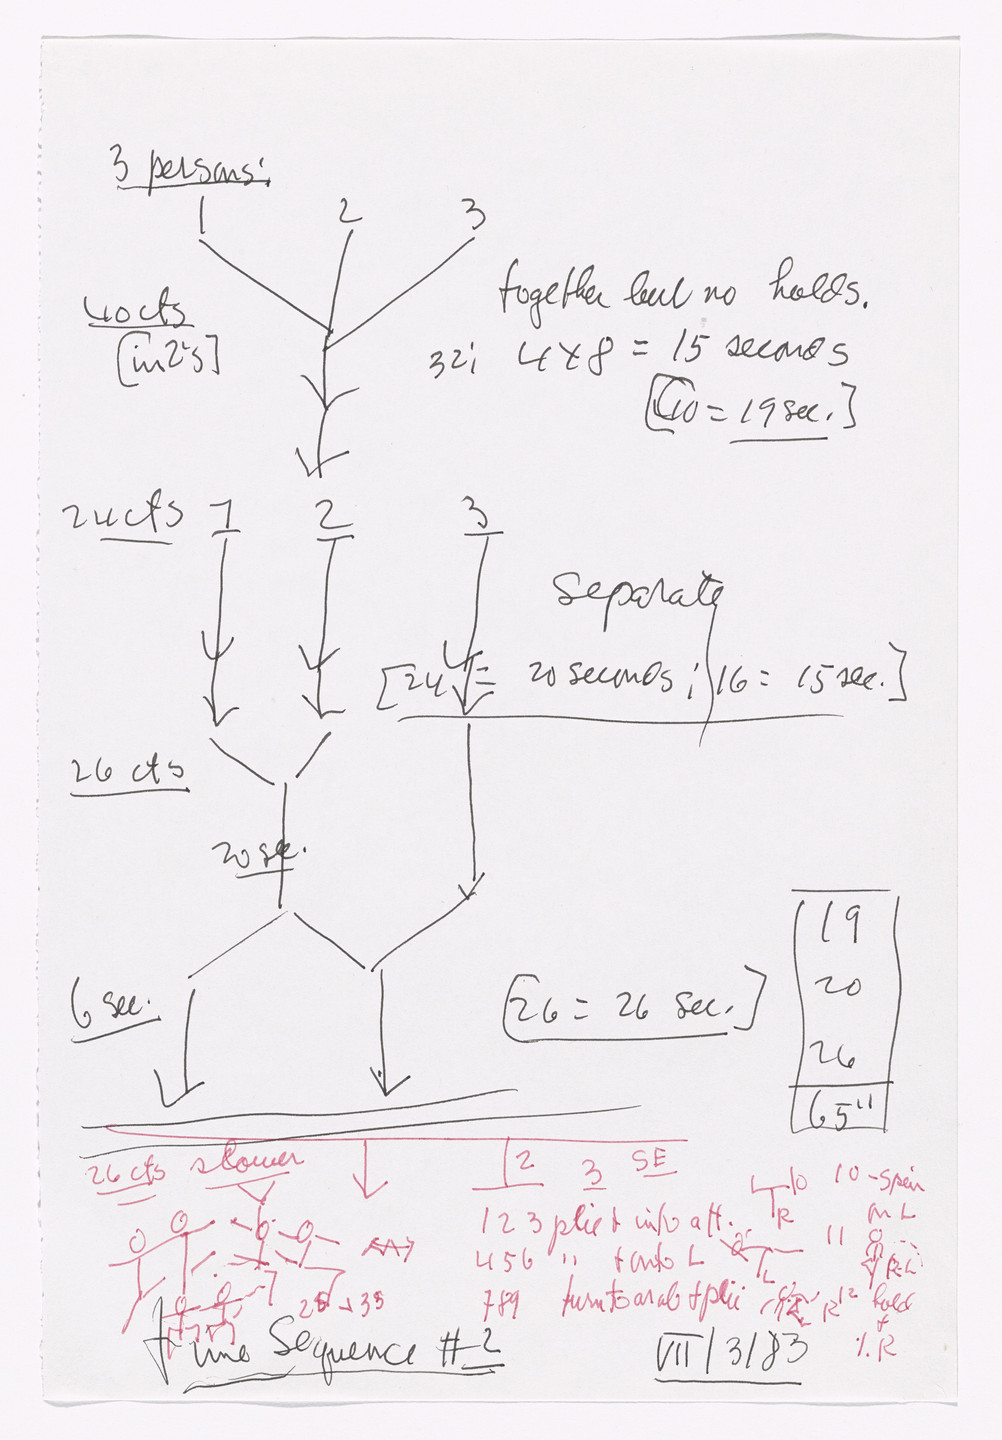 3 persons:
1 2 3
40 cts
[in 2's]
together but no holds.
32; 4 x 8 = 15 seconds
[40 = 19 sec.]
24 cts 1 2 3
separate
[24 = 20 seconds; 16 = 15 sec.]
26 cts
20 sec.
6 sec.
[26 = 26 sec.]
19
20
26
65"
26 cts slower
2 3 SE
1 2 3 plié + into att. R
4 5 6 " + onto L L
7 8 9 turn to arab + plié R
10 - spin
on L
11 R-L
12 hold
+
R
25 + 35
Sequence #2
VII/3/83